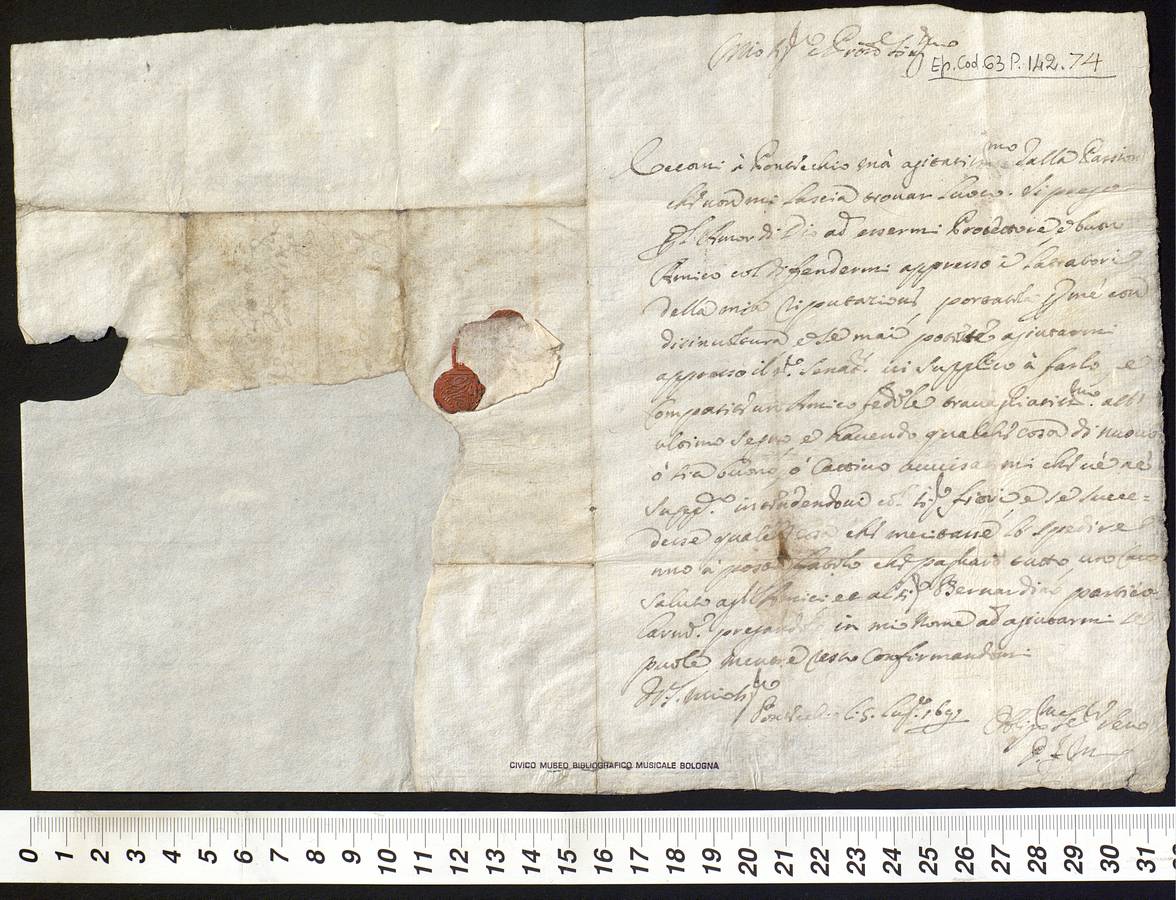 Mio Sig.r e Pron Sing.mo
Ep. Cod. 63 P. 142. 74
Eccomi à Pontecchio mà agitatiss.mo dalla Passion
che non mi lascia trovar luoco. Vi prego
p l'Amor di Dio ad essermi Protettore e buon
Amico col diffendermi appresso i
della mia riputazione portate p me con
disinvoltura e se mai potete ajutarmi
appresso il S.r Senat.r vi supplico à farlo e
compatite un Amico fedele travagliatiss.mo all'
ultimo segno e havendo qualche cosa di nuovo
ò sia buono ò cattivo avvisatemi che ve ne
supp.o intendendovi col Sig.r Fiori e se succe=
desse qualche cosa che meritasse lo spedire
uno à posta fatelo che pagharò tutto, un caro
saluto agl'Amici et al Sig.r Bernardino partico
larm.e pregandolo in mio nome ad ajutarmi se
puole mentre resto confirmandomi
Di V.S. mio Sig.r
Pontecchio li 5 1691
CIVICO MUSEO BIBLIOGRAFICO MUSICALE BOLOGNA
0 1 2 3 4 5 6 7 8 9 10 11 12 13 14 15 16 17 18 19 20 21 22 23 24 25 26 27 28 29 30 31